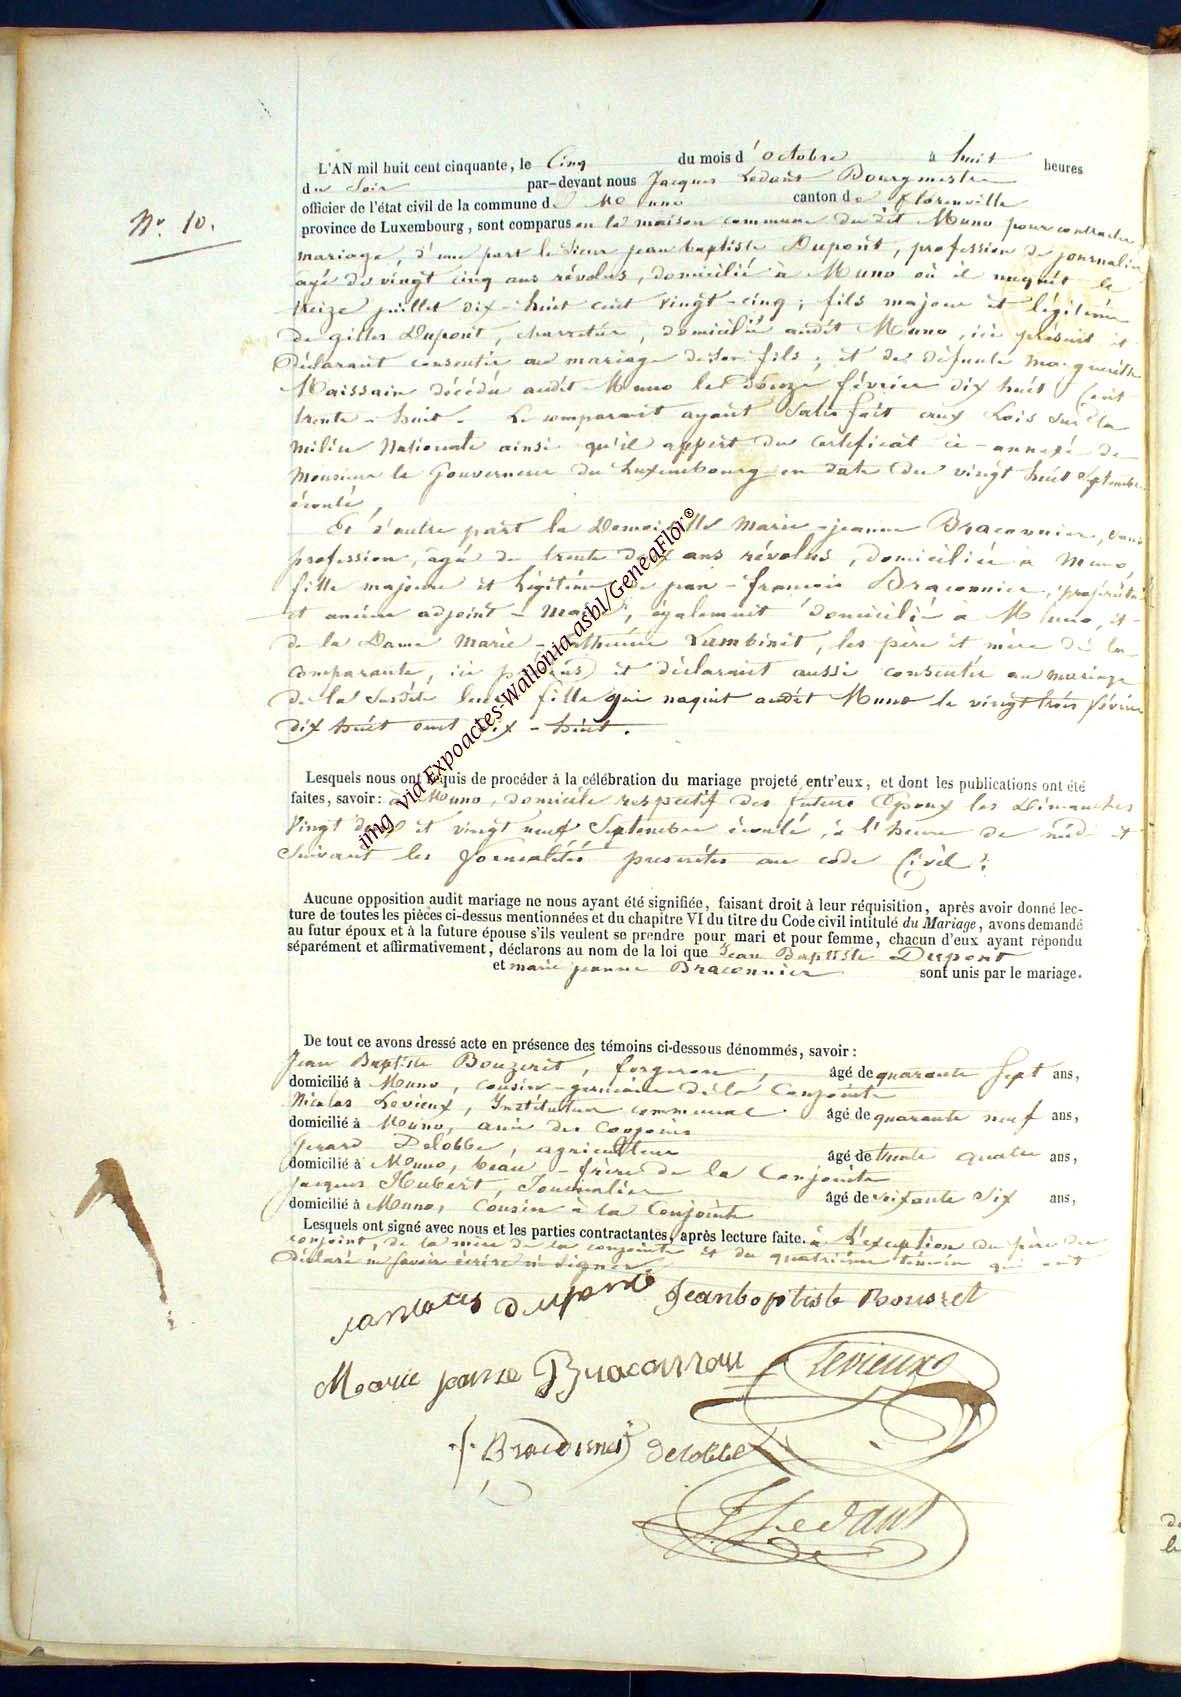 L'AN mil huit cent cinquante, le Cinq du mois d'octobre à huit heures
du Soir par-devant nous Jacques Ledant Bourgmestre
officier de l'état civil de la commune de Muno canton de Florenville
province de Luxembourg, sont comparus en la maison commune du dit Muno pour contracter
N.º 10.
mariage, d'une part le Sieur jean baptiste Dupont, profession de journalier
agé de vingt cinq ans révolus, domicilié à Muno où il naquit le
treize juillet dix-huit cent vingt-cinq ; fils majeur et légitime
de gilles Dupont, charretier, domicilié audit Muno, ici présent et
déclarant consentir au mariage de son fils ; et de défunte Marguerite
Maissain décédée audit Muno le douze février dix huit Cent
trente-huit. Le comparant ayant satisfait aux Lois sur la
milice Nationale ainsi qu'il appert du certificat ci-annexé de
Monsieur le Gouverneur du Luxembourg en date du vingt huit Septembre
écoulé,
Et d'autre part la Demoiselle Marie-jeanne Braconnier, sans
profession, agée de trente deux ans révolus, domiciliée à Muno,
fille majeure et légitime de jean-françois Braconnier, propriétaire
et ancien adjoint-Maire, également domicilié à Muno, et
de la Dame Marie-Catherine Lambinet, les père et mère de la
comparante, ici présens et déclarant aussi consentir au mariage
de la susdite leur fille qui naquit audit Muno le vingt trois février
dix huit cent dix-huit.
Lesquels nous ont requis de procéder à la célébration du mariage projeté entr'eux, et dont les publications ont été
faites, savoir: à Muno, domicile respectif des futurs Epoux les Dimanches
vingt deux et vingt neuf Septembre écoulé, à l'heure de midi et
suivant les formalités prescrites au code Civil.
Aucune opposition audit mariage ne nous ayant été signifiée, faisant droit à leur réquisition, après avoir donné lec-
ture de toutes les pièces ci-dessus mentionnées et du chapitre VI du titre du Code civil intitulé du Mariage, avons demandé
au futur époux et à la future épouse s'ils veulent se prendre pour mari et pour femme, chacun d'eux ayant répondu
séparément et affirmativement, déclarons au nom de la loi que Jean Baptiste Dupont
et marie jeanne Braconnier sont unis par le mariage.
De tout ce avons dressé acte en présence des témoins ci-dessous dénommés, savoir :
Jean Baptiste Bouzeret, forgeron, âgé de quarante sept ans,
domicilié à Muno, cousin-germain de la Conjointe
Nicolas Levieux, Instituteur communal âgé de quarante neuf ans,
domicilié à Muno, ami des Conjoins
Gerard Delobbe, agriculteur âgé de trente quatre ans,
domicilié à Muno, beau-frère de la Conjointe
Jacques Hubert, Journalier âgé de soixante six ans,
domicilié à Muno, Cousin à la Conjointe
Lesquels ont signé avec nous et les parties contractantes, après lecture faite. à l'exception du père du
conjoint, de la mère de la conjointe et du quatrième témoin qui ont
déclaré ne savoir écrire ni signer
dupont Jeanbaptiste Bousret
Marie jeanne Braconnier Levieux
f. Braconnier delobbe
J. Ledant
img via Expoactes-Wallonia asbl/GeneaFlor©